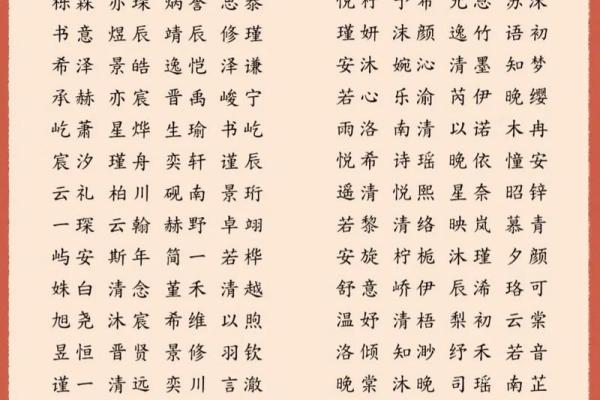 亦琛
书意 煜辰 靖辰 修瑾
希泽 景皓 逸恺 泽谦
承赫 亦宸 晋禹 峻宁
屹萧 星烨 生瑜 书屹
宸汐 瑾舟 奕轩 谨辰
云礼 柏川 砚南 景珩
一琛 云翰 赫野 卓翊
屿安 斯年 简一 若桦
姝白 清念 堇禾 清越
旭尧 沐宸 希维 以煦
昱恒 晋贤 景修 羽钦
谨一 清远 奕川 言澈
瑾妍 沫颜 逸竹 语初
安沐 婉沁 清墨 知梦
若心 乐渝 芮伊 晚缨
雨洛 南清 以诺 木冉
悦希 诗瑶 晚依 憧安
遥清 悦熙 星奈 昭锌
若黎 清络 映岚 慕青
安旋 柠栀 沐瑾 夕颜
舒意 峤伊 辰浠 珞可
温妤 清梧 梨初 云棠
洛倾 知渺 纾禾 若音
晚棠 沐晚 司瑶 南芷